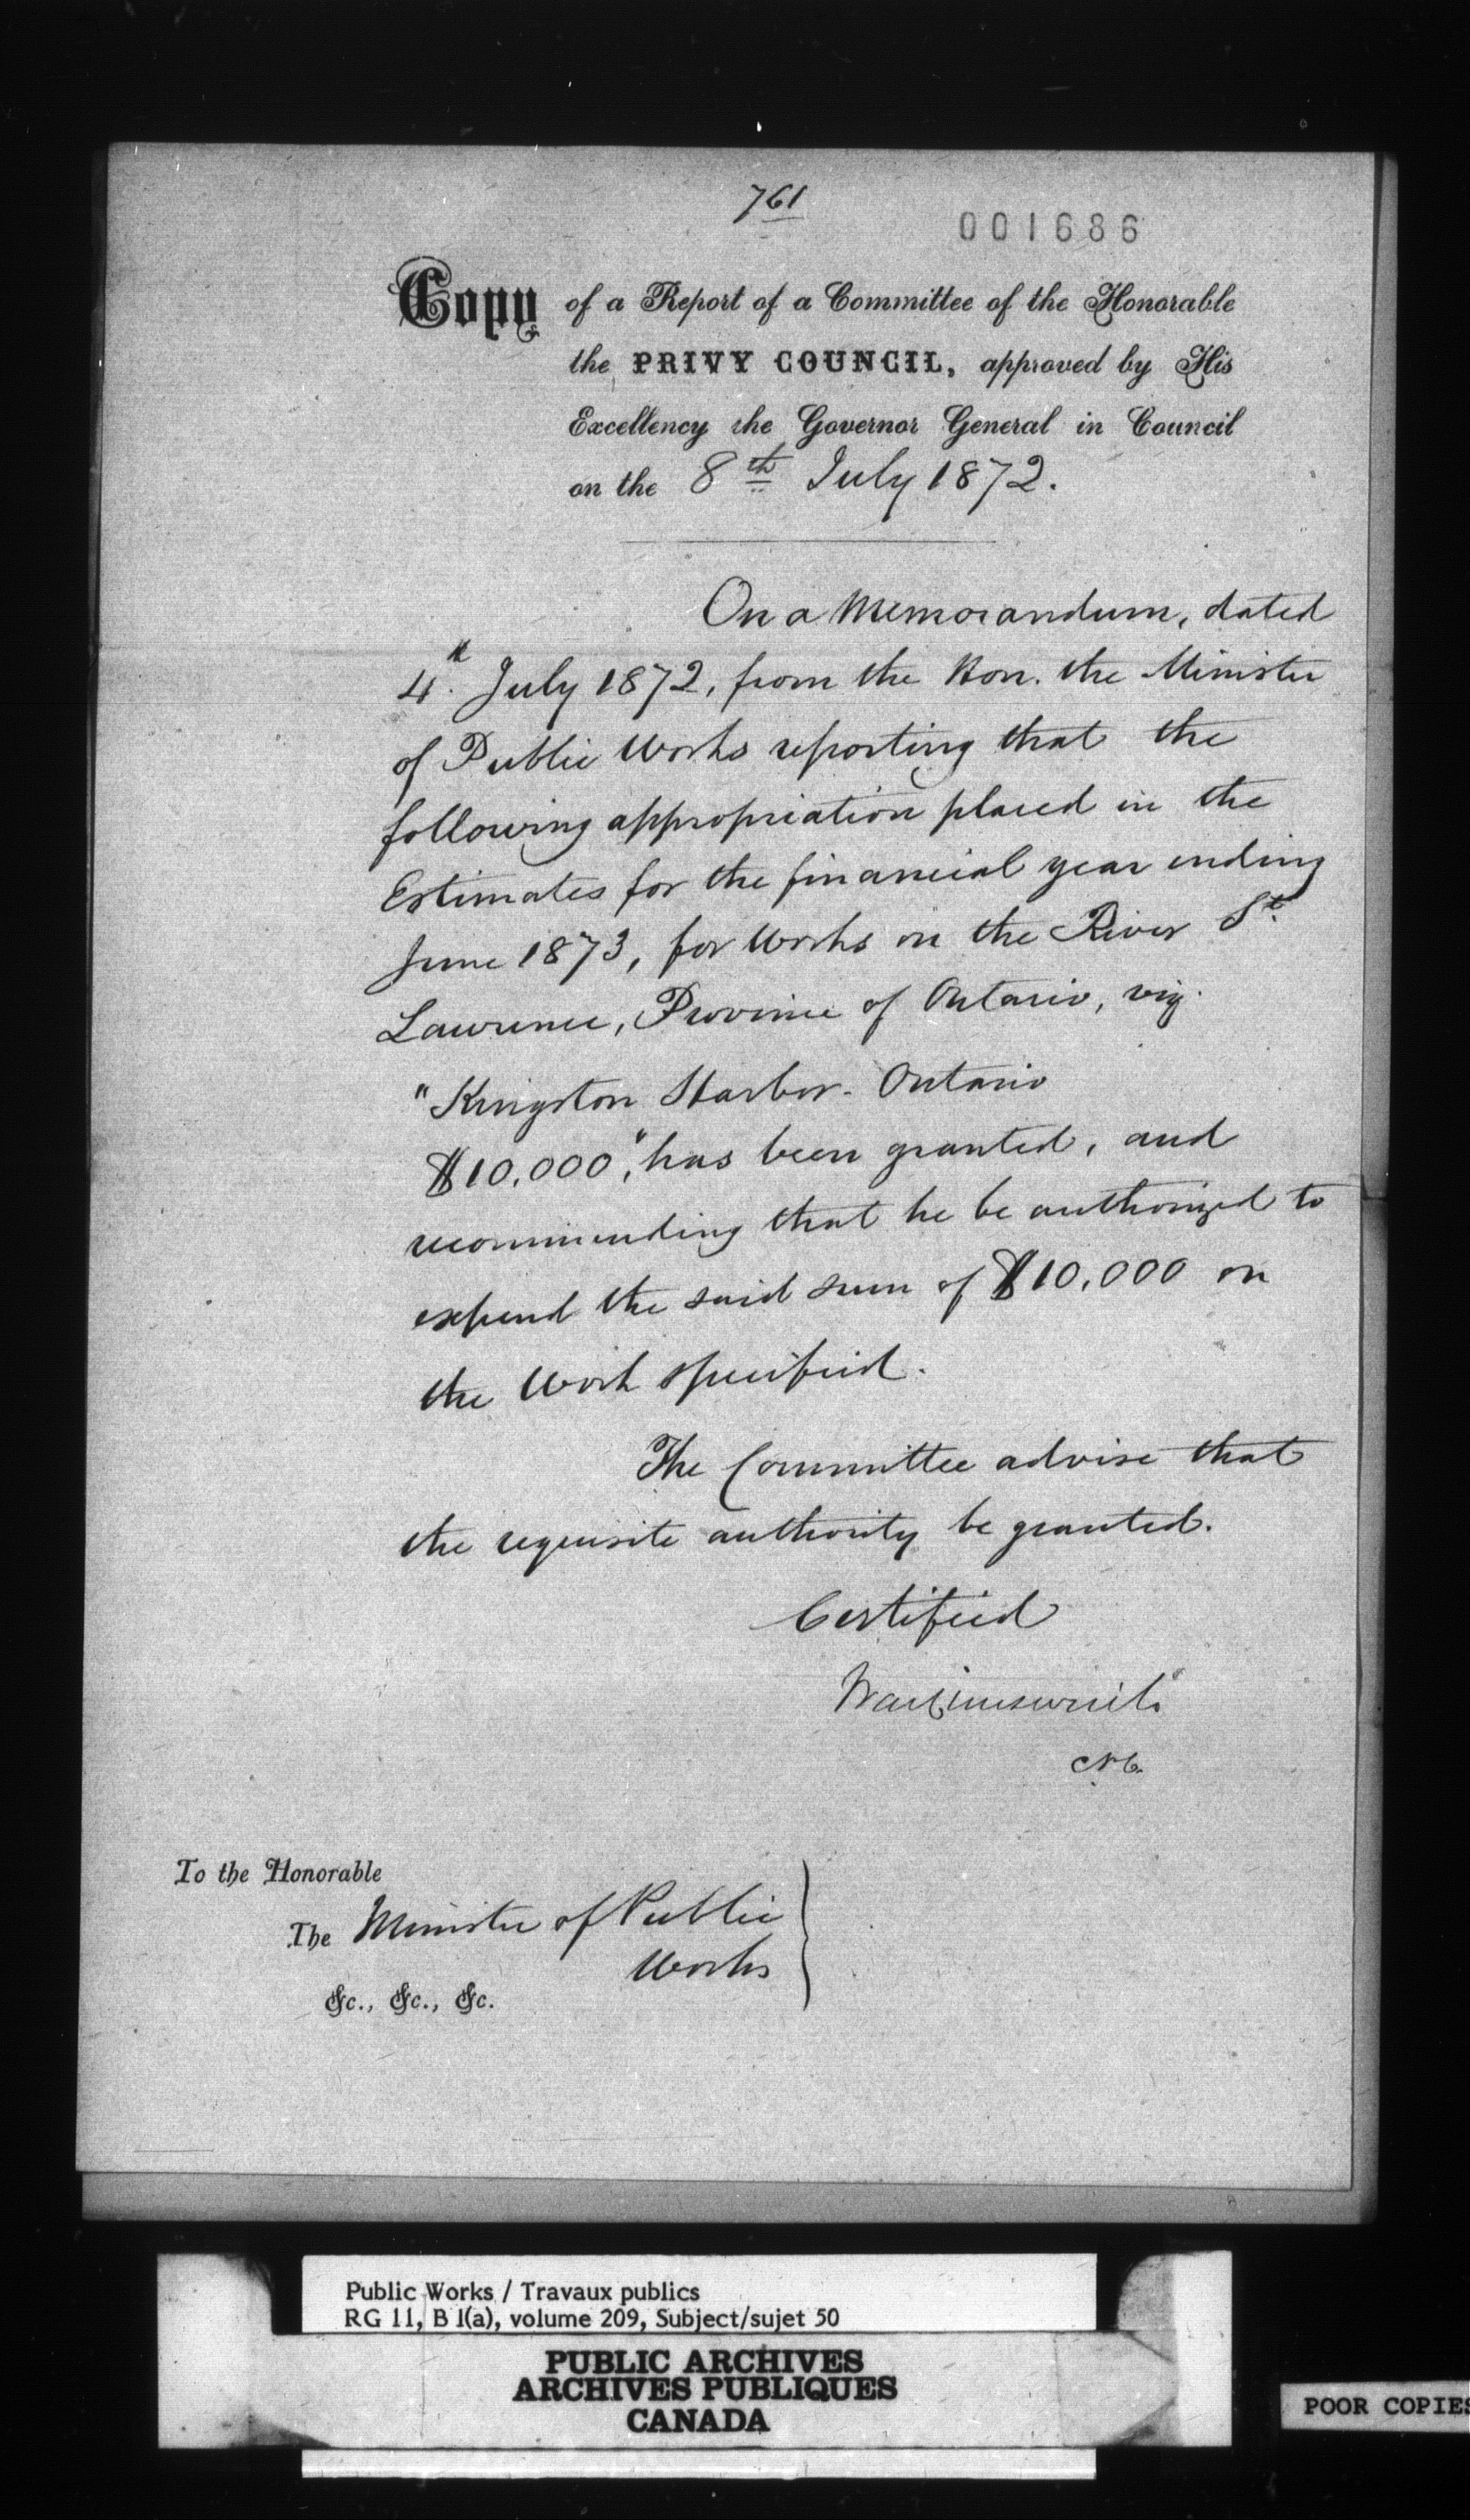 761
001686
Copy of a Report of a Committee of the Honorable
the PRIVY COUNCIL, approved by His
Excellency the Governor General in Council
on the 8th July 1872.
On a Memorandum, dated
4th July 1872, from the Hon. the Minister
of Public Works reporting that the
following appropriation placed in the
Estimates for the financial year ending
June 1873, for Works on the River St
Lawrence, Province of Ontario, viz.
"Kingston Harbor. Ontario
$10,000", has been granted, and
recommending that he be authorized to
expend the said sum of $10,000 on
the Work specified.
The Committee advise that
the requisite authority be granted.
Certified
To the Honorable
The Minister of Public
Works
&c., &c., &c.
Public Works / Travaux publics
RG 11, B 1(a), volume 209, Subject/sujet 50
PUBLIC ARCHIVES
ARCHIVES PUBLIQUES
CANADA
POOR COPIES